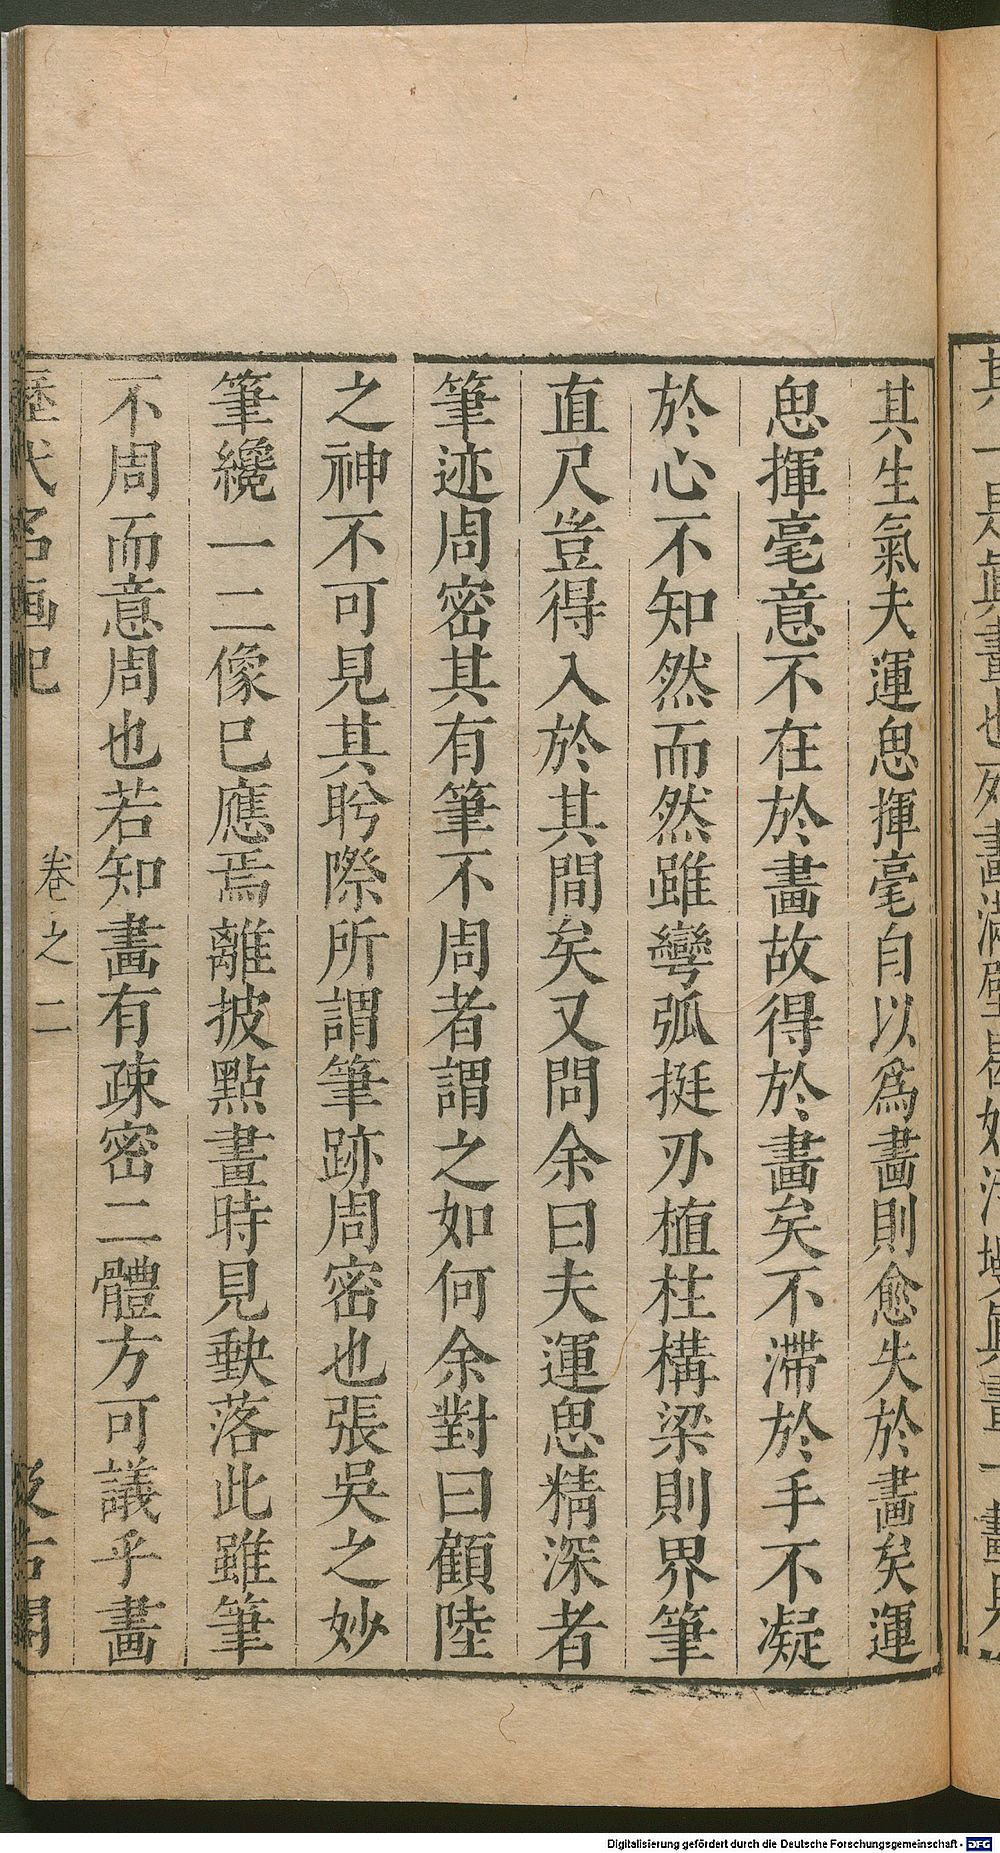 其生氣夫運思揮毫自以爲畫則愈失於畫矣運
思揮毫意不在於畫故得於畫矣不滯於手不凝
於心不知然而然雖彎弧挺刃植柱構梁則界筆
直尺豈得入於其間矣又問余曰夫運思精深者
筆迹周密其有筆不周者謂之如何余對曰顧陸
之神不可見其盻際所謂筆跡周密也張吳之妙
筆纔一二像已應焉離披點畫時見缺落此雖筆
不周而意周也若知畫有疎密二體方可議乎畫
歷代名画记 卷之二 汲古閣
Digitalisierung gefördert durch die Deutsche Forschungsgemeinschaft - DFG